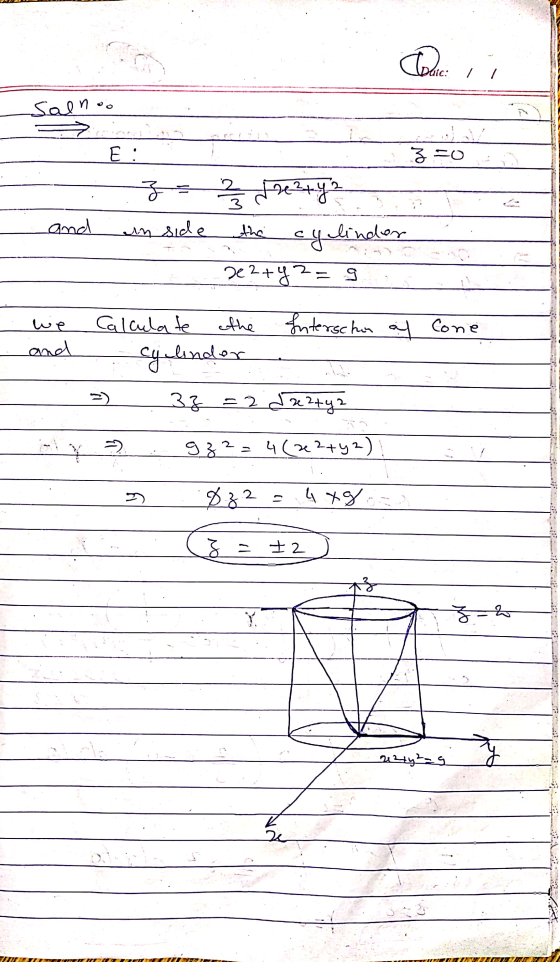 Date: / /
Soln..
E : z = 0
z = 2/3 √x²+y²
and in side the cylinder
x²+y² = 9
we Calculate the Intersection of Cone
and cylinder .
⇒ 3z = 2 √x²+y²
⇒ 9z² = 4(x²+y²)
⇒ 9z² = 4 × 9
z = ±2
z
z = 2
x²+y²=9
y
x